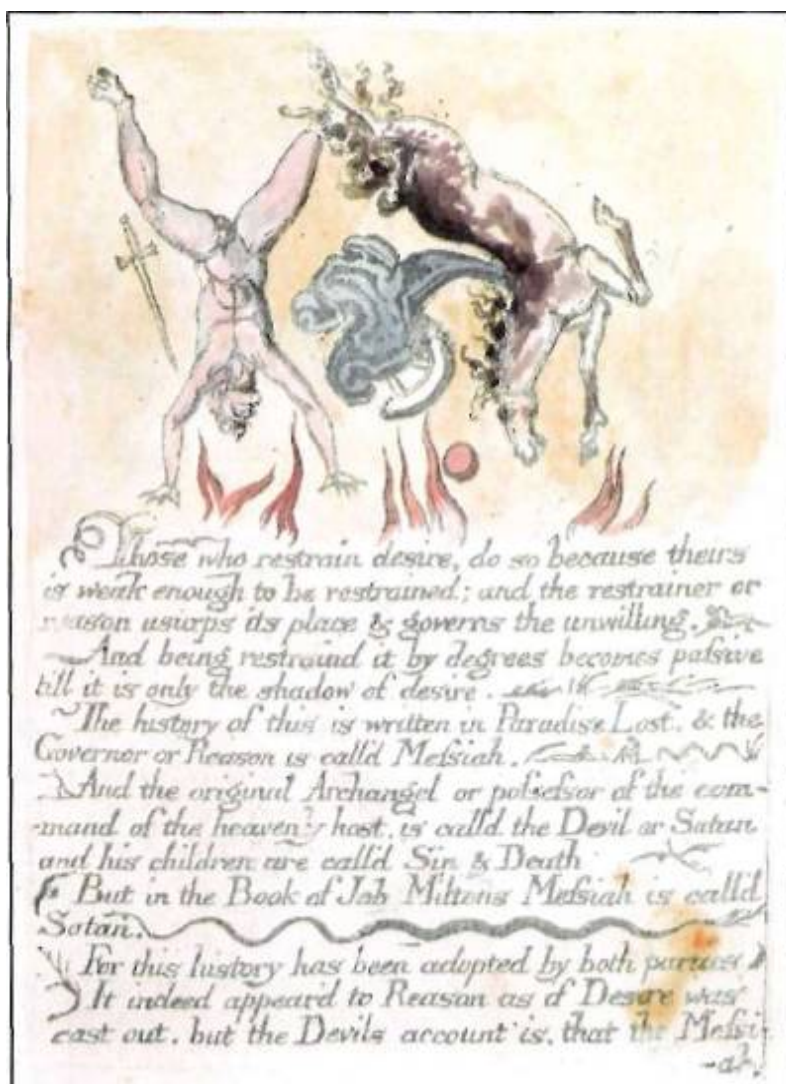 Those who restrain desire, do so because theirs
is weak enough to be restrained; and the restrainer or
reason usurps its place & governs the unwilling.
And being restraind it by degrees becomes paſsive
till it is only the shadow of desire.
The history of this is written in Paradise Lost. & the
Governor or Reason is call'd Meſsiah.
And the original Archangel or poſseſsor of the com-
-mand of the heavenly host, is calld the Devil or Satan
and his children are call'd Sin & Death
But in the Book of Job Miltons Meſsiah is call'd
Satan.
For this history has been adopted by both parties
It indeed appear'd to Reason as if Desire was
cast out, but the Devils account is, that the Meſsi-
-ah.